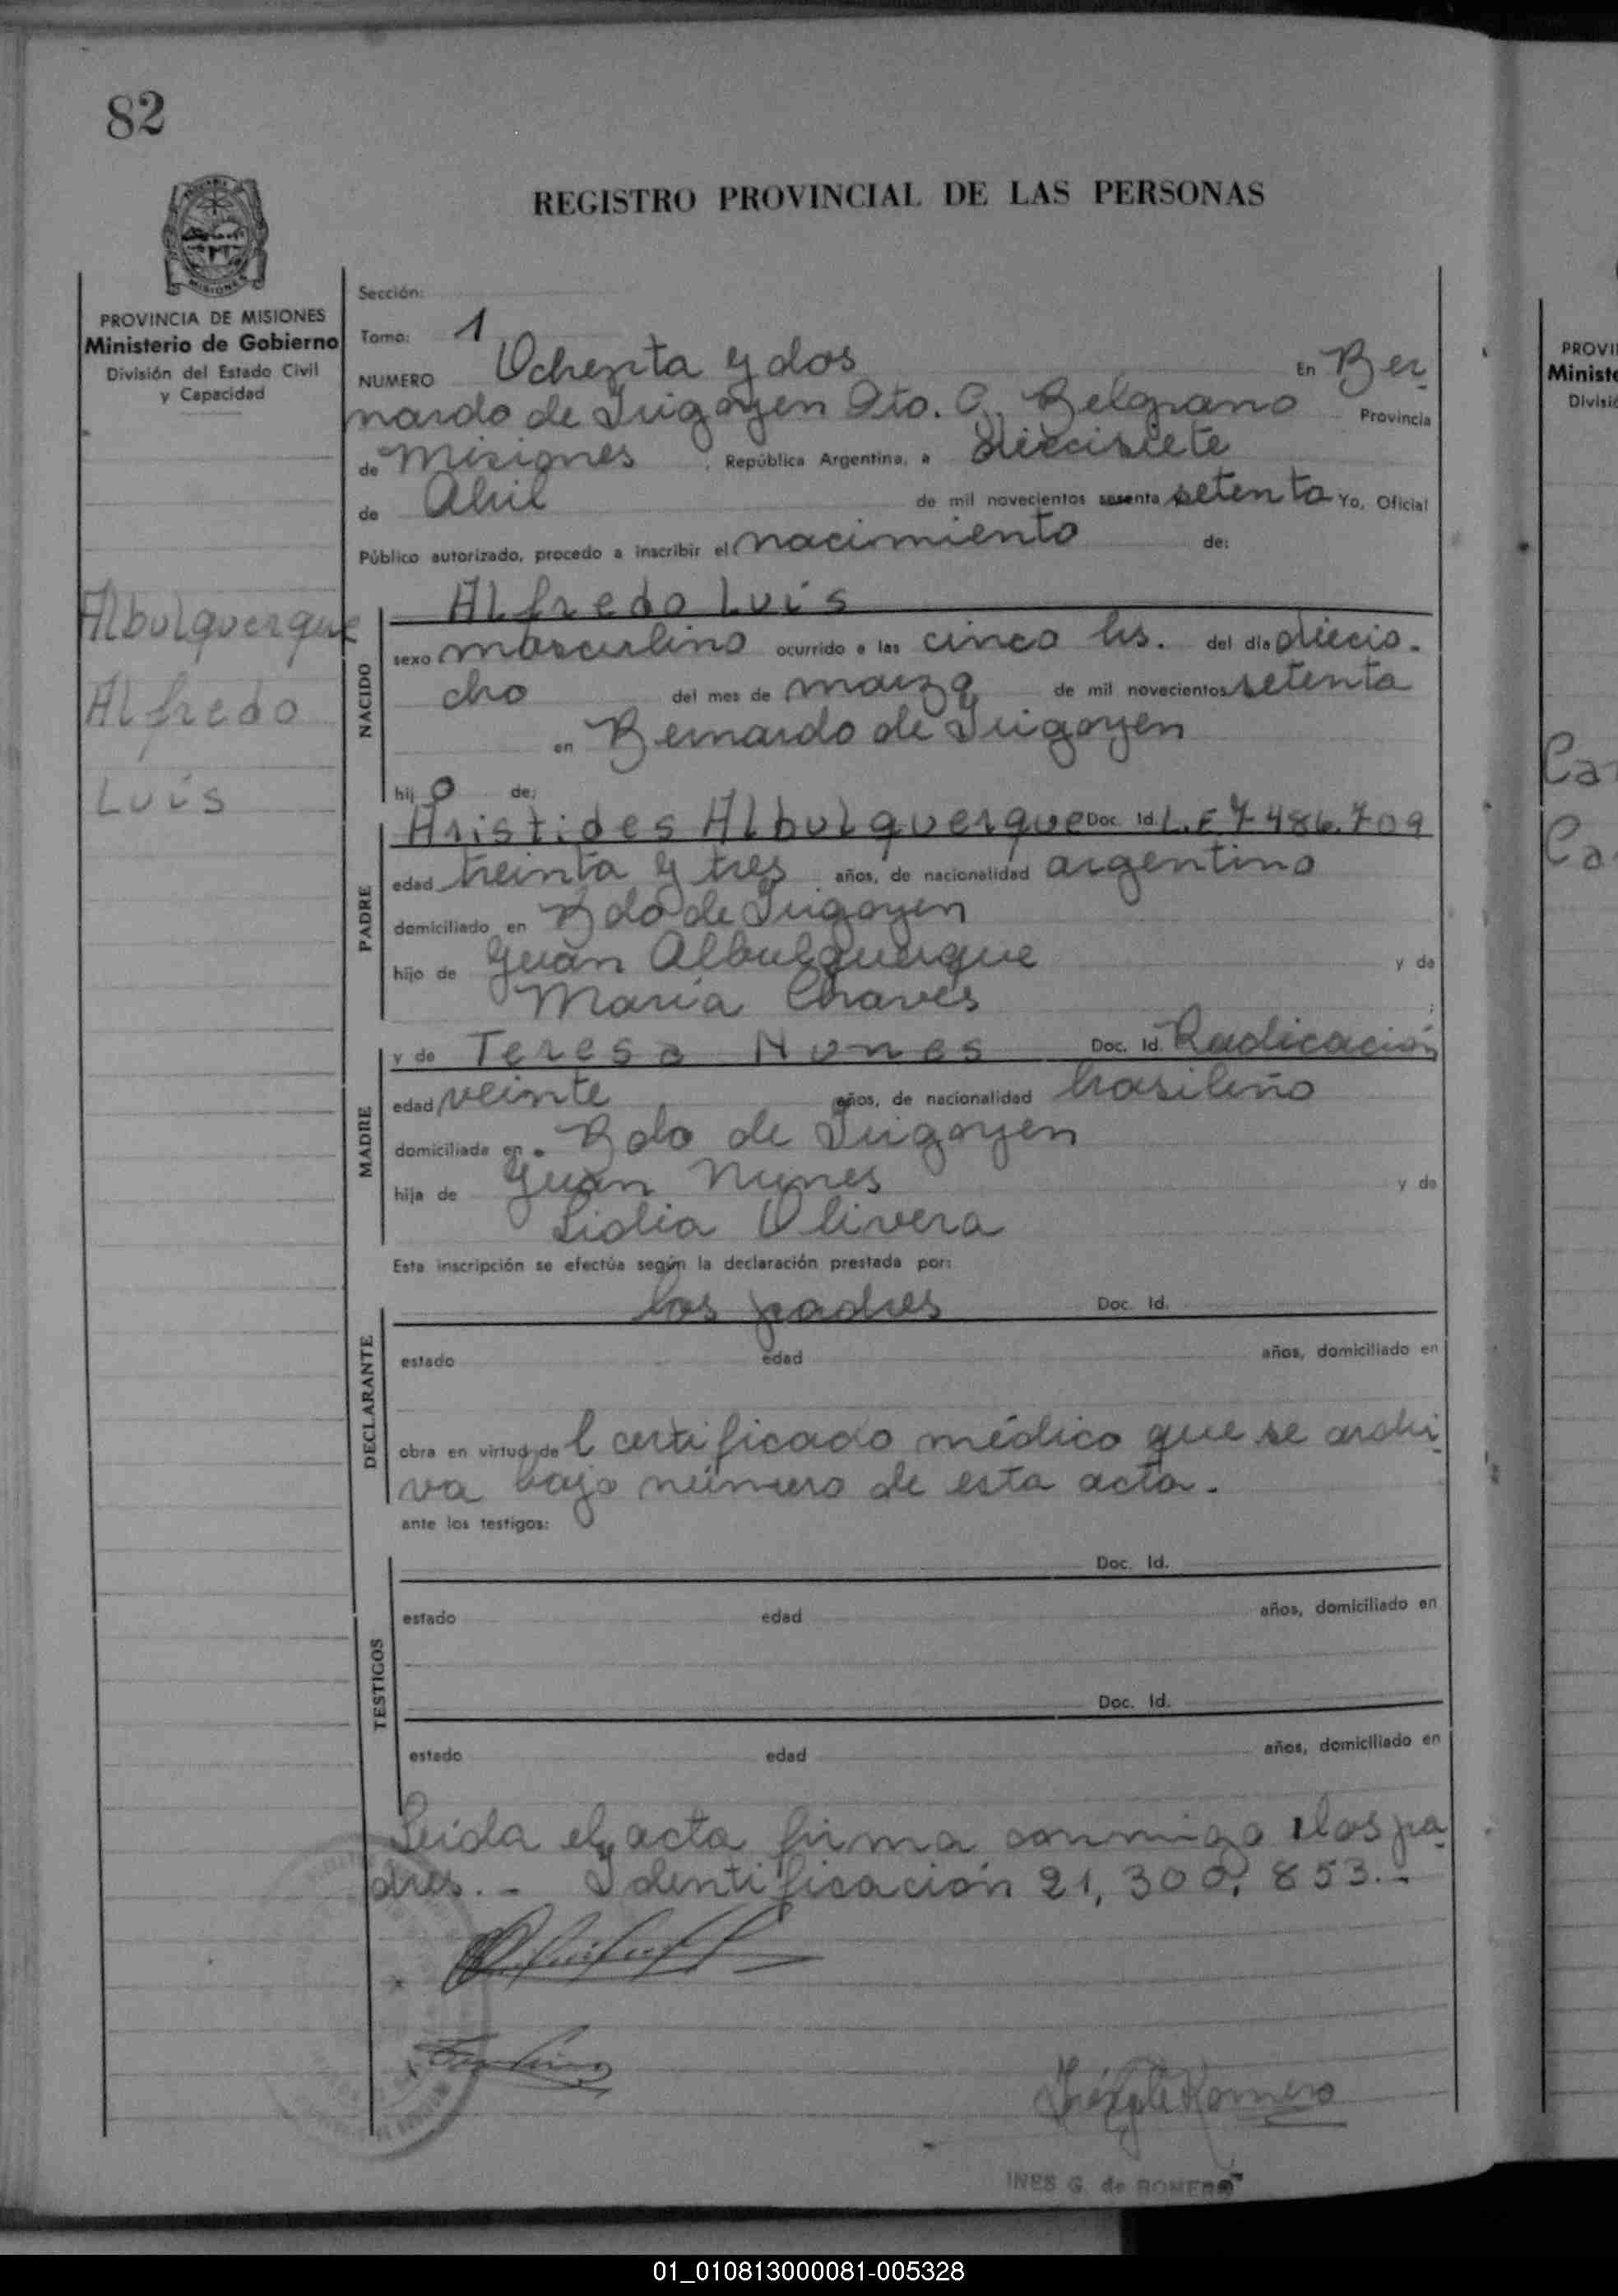 82
REGISTRO PROVINCIAL DE LAS PERSONAS
MISIONES
PROVINCIA DE MISIONES
Ministerio de Gobierno
División del Estado Civil
y Capacidad
Sección:
Tomo: 1
NUMERO Ochenta y dos En Ber
nardo de Irigoyen Dto. G. Belgrano Provincia
de Misiones, República Argentina, a diecisiete
de Abril de mil novecientos sesenta setenta Yo, Oficial
Público autorizado, procedo a inscribir el nacimiento de:
Albulquerque
Alfredo
Luis
NACIDO
Alfredo Luis
sexo masculino ocurrido a las cinco hs. del día diecio-
cho del mes de marzo de mil novecientos setenta
en Bernardo de Irigoyen
hij o de:
PADRE
Aristides Albulquerque Doc. Id. L.E 7486.709
edad treinta y tres años, de nacionalidad argentino
domiciliado en Bdo de Irigoyen
hijo de Juan Albulquerque y de
Maria Chaves ;
MADRE
y de Teresa Nunes Doc. Id. Radicación
edad veinte años, de nacionalidad brasileño
domiciliada en Bdo de Irigoyen
hija de Juan Nunes y de
Lidia Olivera
Esta inscripción se efectúa según la declaración prestada por:
DECLARANTE
los padres Doc. Id.
estado edad años, domiciliado en
obra en virtud de l certificado médico que se archi
va bajo número de esta acta.
ante los testigos:
TESTIGOS
Doc. Id.
estado edad años, domiciliado en
Doc. Id.
estado edad años, domiciliado en
Leida el acta firma conmigo los pa
dres. - Identificación 21,300,853.-
INES G. de ROMERO
PROVI
Ministe
Divisió
Ca
Ca
01_010813000081-005328